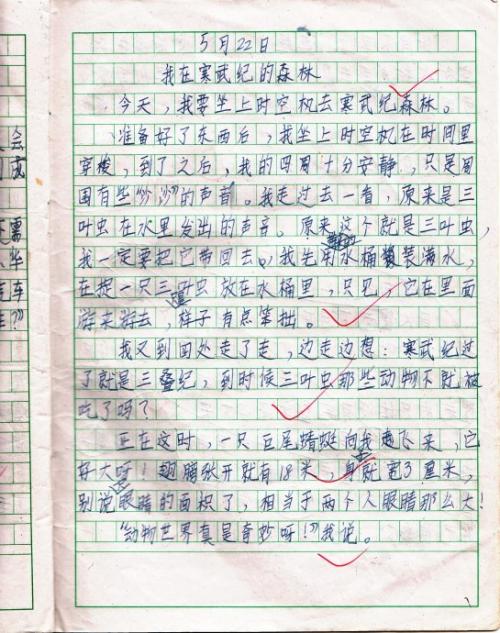 5月22日
我在寒武纪的森林
今天，我要坐上时空机去寒武纪森林。
准备好了东西后，我坐上时空机在时间里
穿梭，到了之后，我的四周十分安静，只是周
围有些“沙沙”的声音。我走过去一看，原来是三
叶虫在水里发出的声音。原来这个就是三叶虫，
我一定要把它带回去。我先用水桶装满水，
在捉一只三叶虫放在水桶里，只见，它在里面
游来游去，样子有点笨拙。
我又到四处走了走，边走边想：寒武纪过
了就是三叠纪，到时候三叶虫那些动物不就被
吃了吗？
正在这时，一只巨尾蜻蜓向我飞来，它
好大呀！翅膀张开就有18米，身就宽3厘米，
别说眼睛的面积了，相当于两个人眼睛那么大！
“动物世界真是奇妙呀！”我说。
会
成
需
华
车
？”